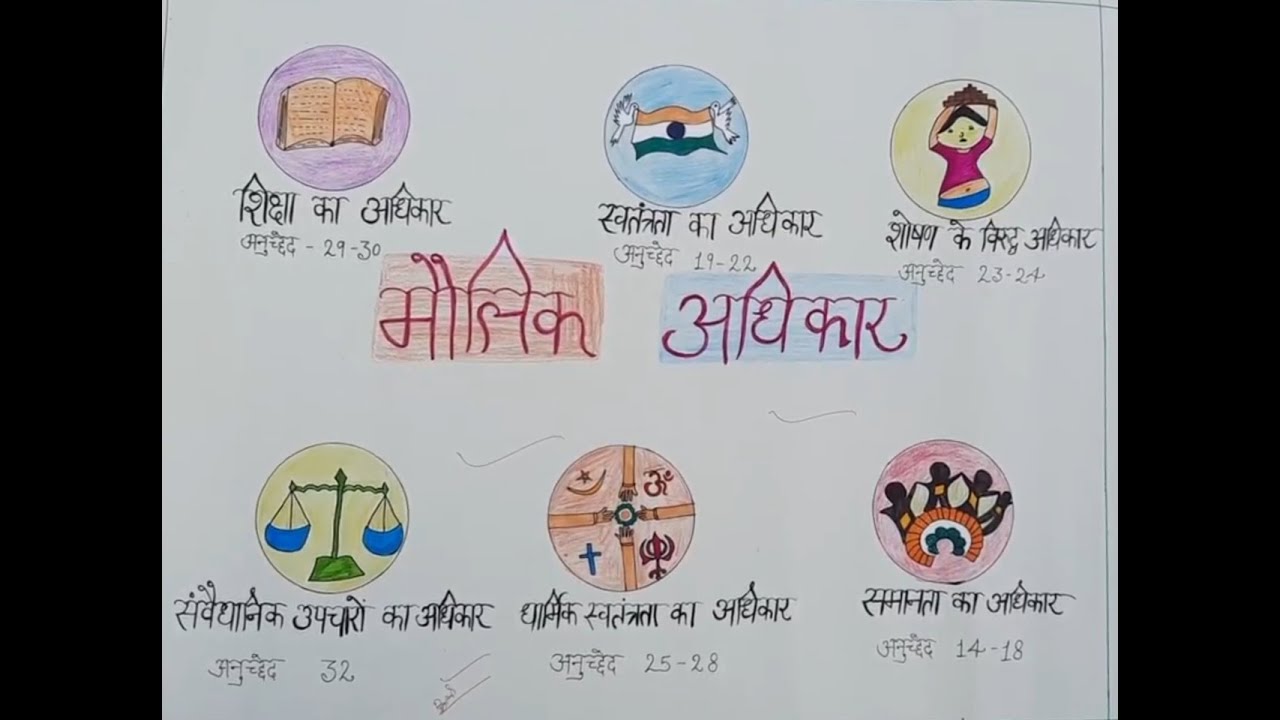 शिक्षा का अधिकार
अनुच्छेद - 29-30
स्वतंत्रता का अधिकार
अनुच्छेद 19-22
शोषण के विरुद्ध अधिकार
अनुच्छेद 23-24
मौलिक अधिकार
संवैधानिक उपचारों का अधिकार
अनुच्छेद 32
धार्मिक स्वतंत्रता का अधिकार
ॐ
अनुच्छेद 25-28
समानता का अधिकार
अनुच्छेद 14-18